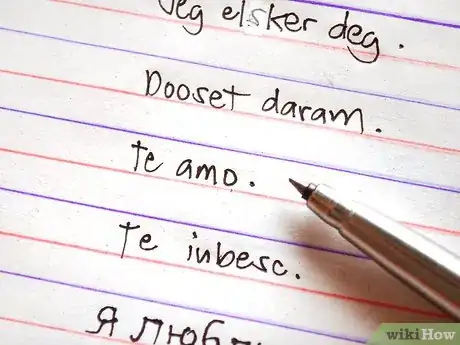 Jeg elsker deg.
Dooset daram.
Te amo.
Te iubesc.
Я
wikiHow